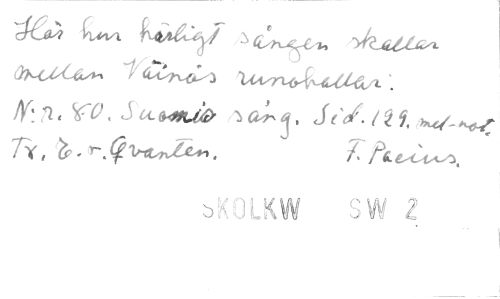 Hör hur härligt sången skallar
mellan Väinös runohallar.
N:r. 80. Suomis sång. Sid. 129. mel-not.
Tr. E. v. Qvanten. F. Pacius.
SKOLKW SW 2